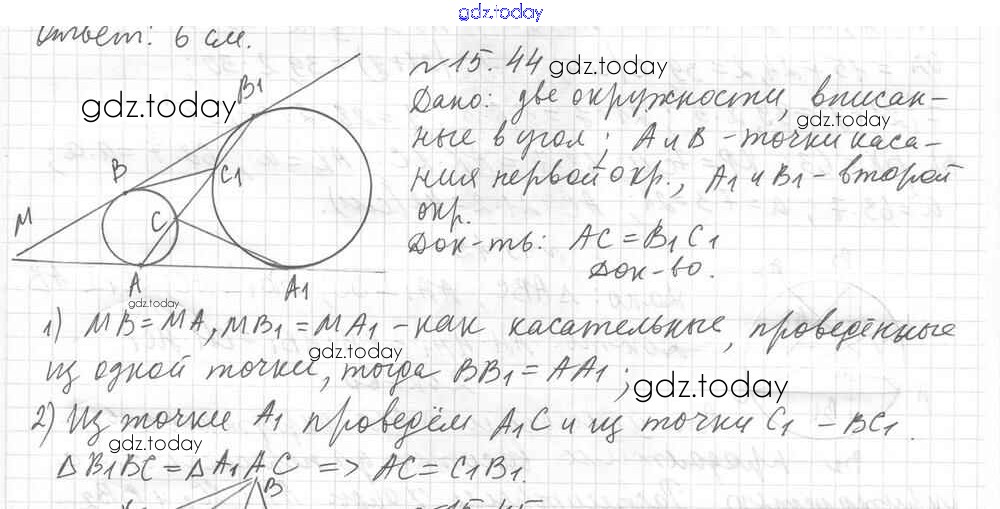 gdz.today
Ответ: 6 см.
№15.44 gdz.today
Дано: две окружности, вписан-
gdz.today
gdz.today
ные в угол; A и B - точки каса-
ния первой окр., A1 и B1 - второй
окр.
Док-ть: AC = B1C1
Док-во.
B1
B
C1
M
C
A
A1
gdz.today
1) MB = MA, MB1 = MA1 - как касательные, проведённые
gdz.today
из одной точки, тогда BB1 = AA1;
gdz.today
2) Из точки A1 проведём A1C и из точки C1 - BC1.
gdz.today
△B1BC = △A1AC => AC = C1B1.
B